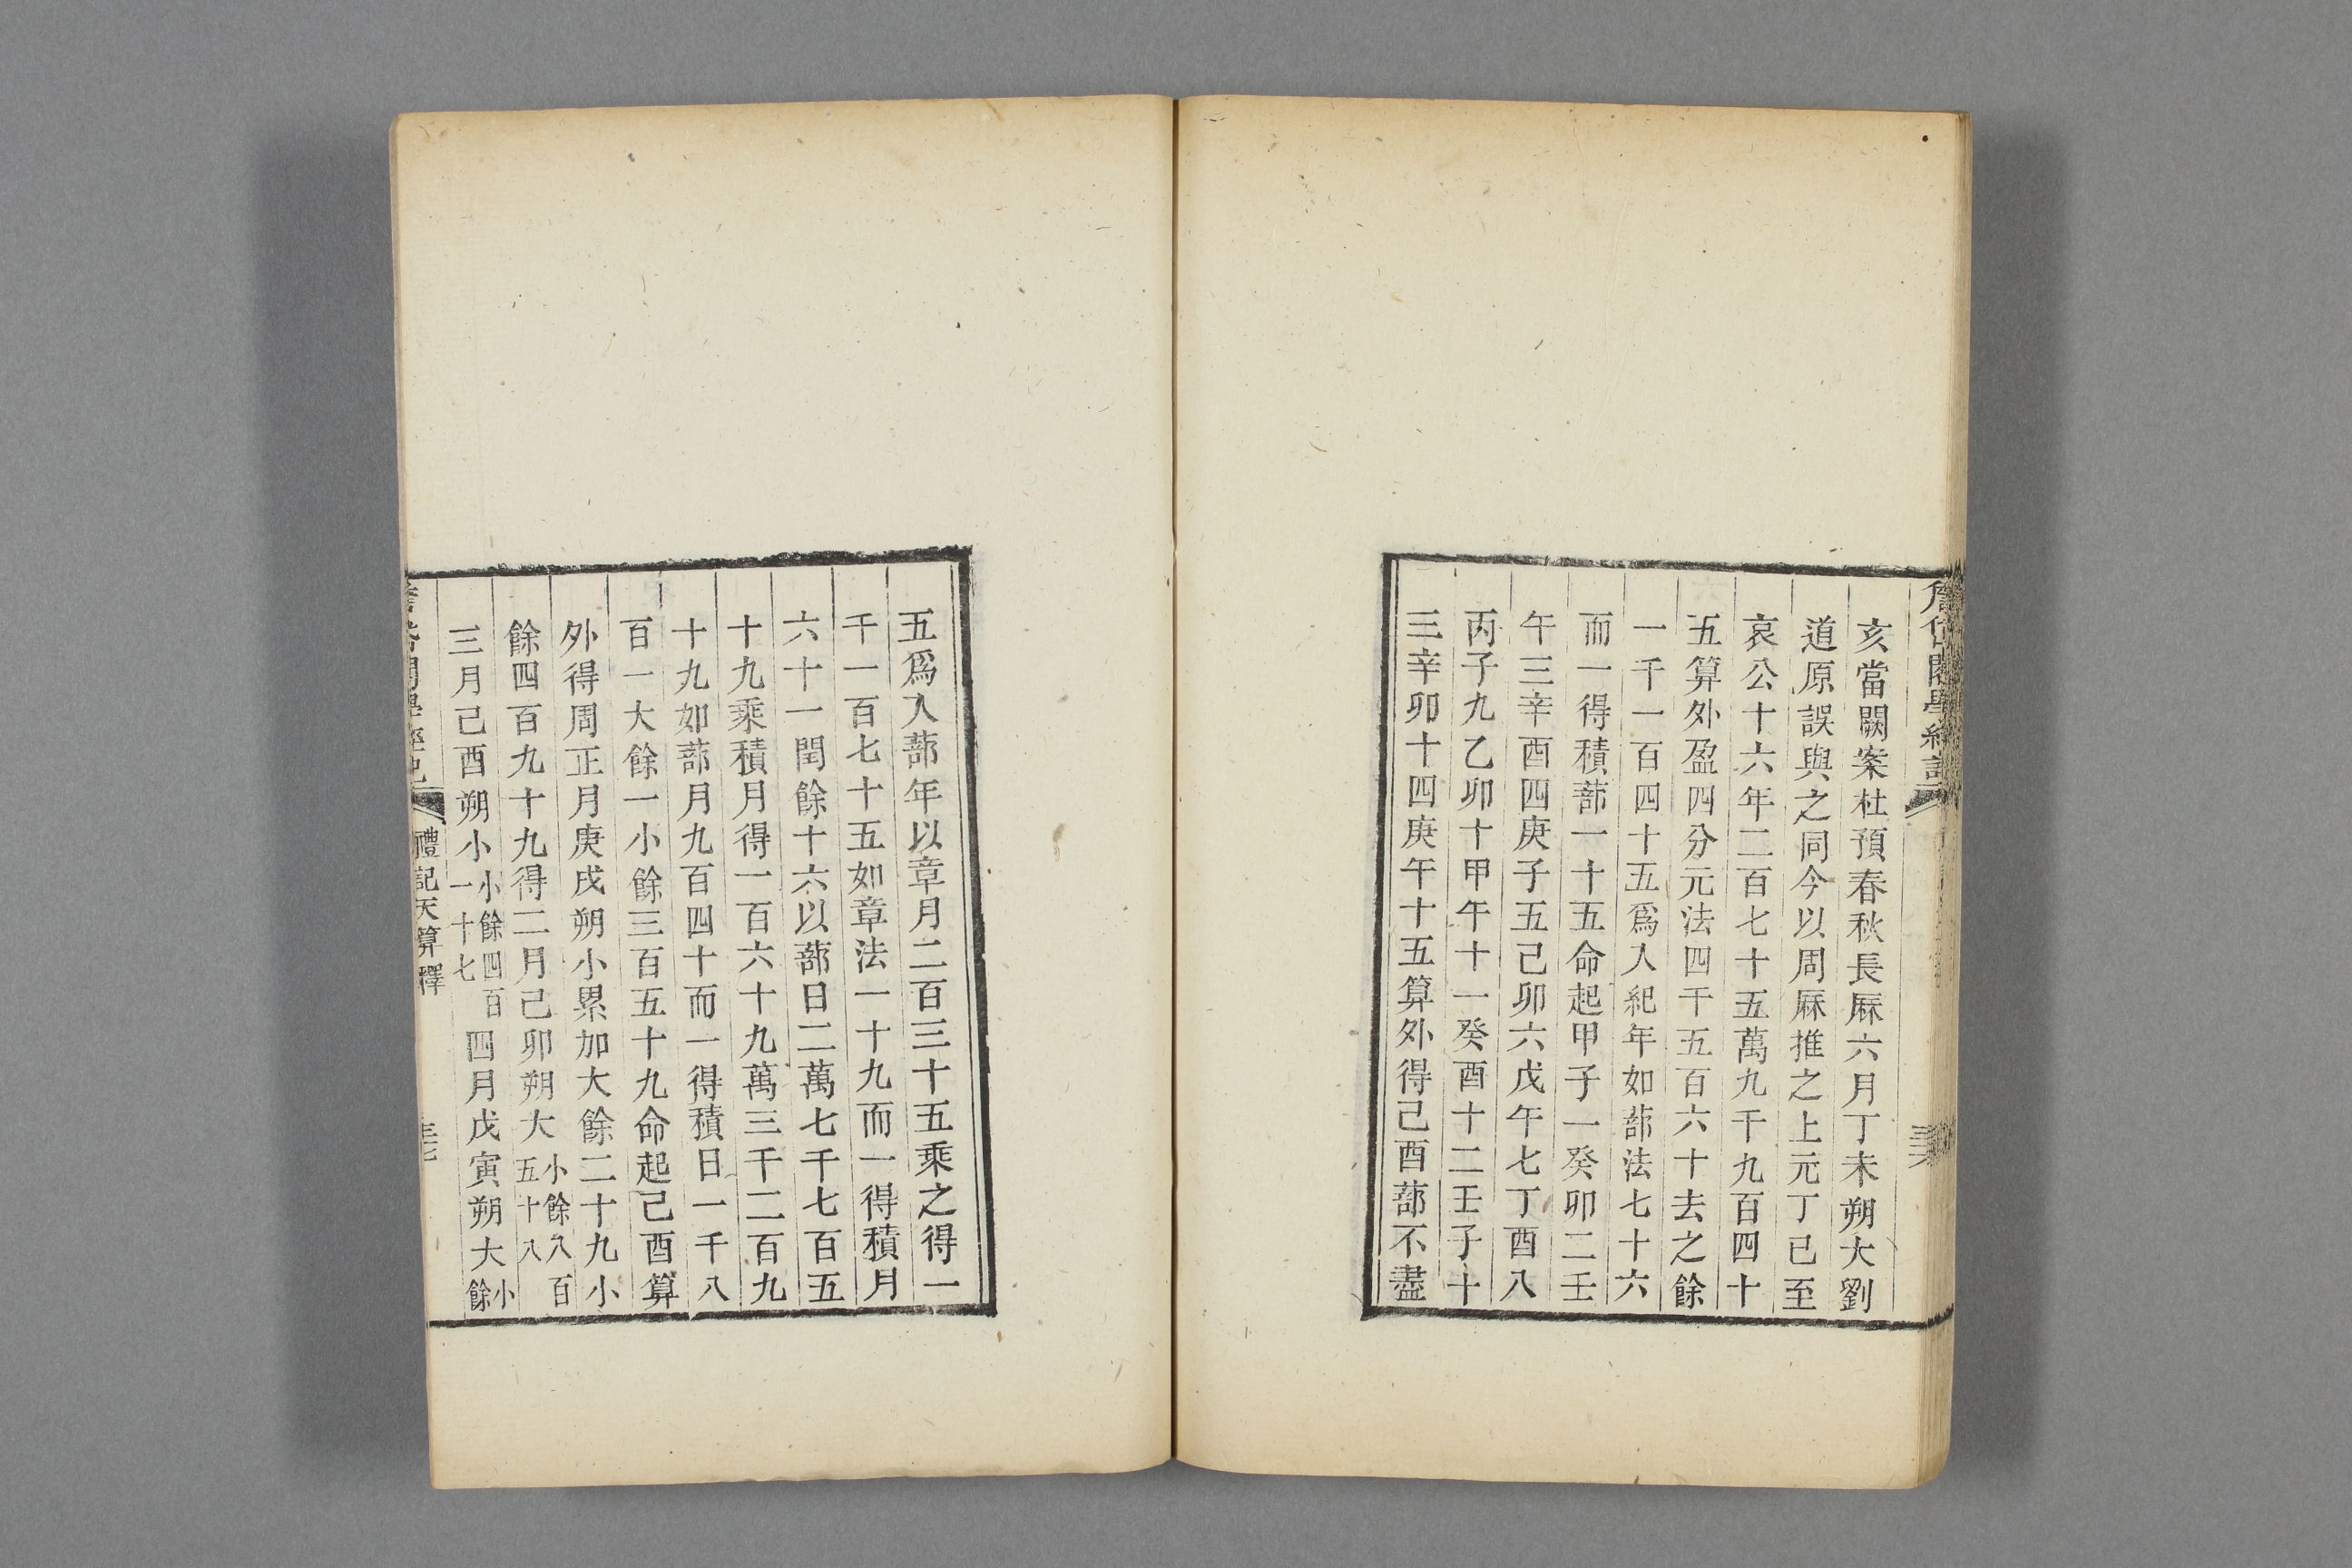 亥當闕案杜預春秋長厤六月丁未朔大劉
道原誤與之同今以周厤推之上元丁巳至
哀公十六年二百七十五萬九千九百四十
五算外盈四分元法四千五百六十去之餘
一千一百四十五爲入紀年如蔀法七十六
而一得積蔀一十五命起甲子一癸卯二壬
午三辛酉四庚子五己卯六戊午七丁酉八
丙子九乙卯十甲午十一癸酉十二壬子十
三辛卯十四庚午十五算外得己酉蔀不盡
五爲入蔀年以章月二百三十五乘之得一
千一百七十五如章法一十九而一得積月
六十一閏餘十六以蔀日二萬七千七百五
十九乘積月得一百六十九萬三千二百九
十九如蔀月九百四十而一得積日一千八
百一大餘一小餘三百五十九命起己酉算
外得周正月庚戌朔小累加大餘二十九小
餘四百九十九得二月己卯朔大小餘八百五十八
三月己酉朔小小餘四百一十七四月戊寅朔大小餘
禮記天算釋